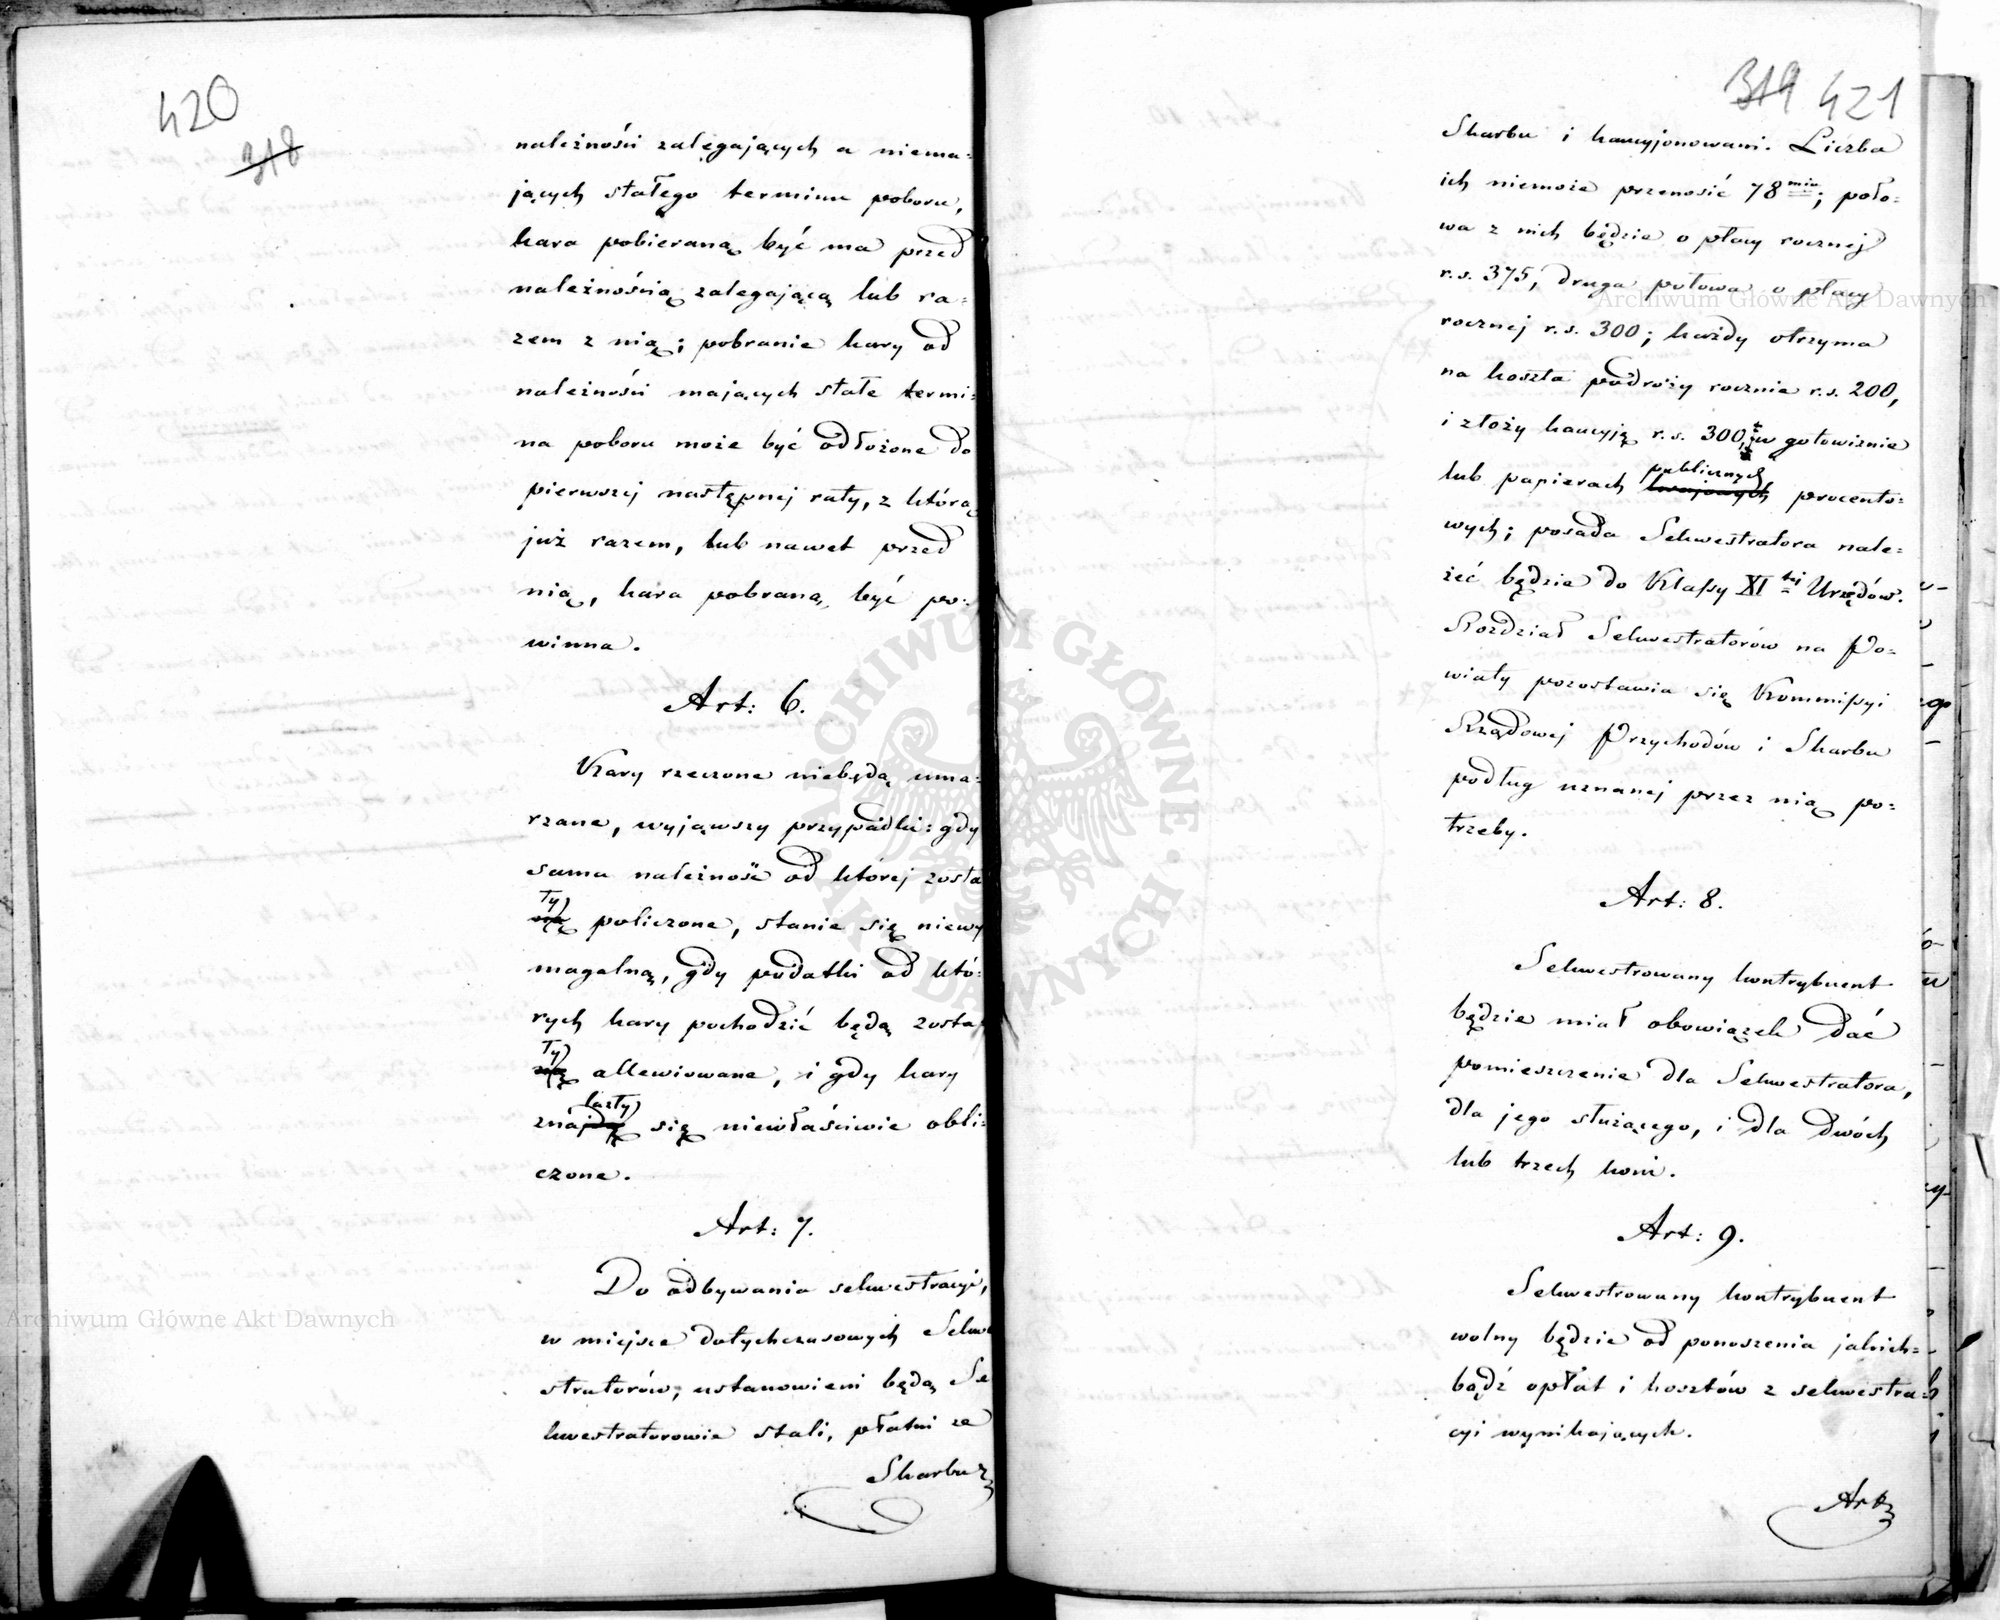 420
318
należności zalegających a niema=
jących stałego terminu poboru,
kara pobieraną być ma przed
należnością zalegającą lub ra=
zem z nią; pobranie kary od
należności mających stałe termi=
na poboru może być odłożone do
pierwszej następnej raty, z którą
już razem, lub nawet przed
nią, kara pobraną być po=
winna.
Art: 6.
Kary rzeczone niebędą uma=
rzane, wyjąwszy przypadki: gdy
sama należność od której zosta
ły policzone, stanie się niewy
magalną, gdy podatki od któ=
rych kary pochodzić będą zosta
ły allewiowane, i gdy kary
znalazły się niewłaściwie obli=
czone.
Art: 7.
Do odbywania sekwestracyi,
w miejsce dotychczasowych Sekwe
stratorów, ustanowieni będą Se
kwestratorowie stali, płatni ze
Skarbu
319 421
Skarbu i kaucyjonowani. Liczba
ich niemoże przenosić 78miu; poło=
wa z nich będzie o płacy rocznej
r.s. 375, druga połowa o płacy
rocznej r.s. 300; każdy otrzyma
na koszta podroży rocznie r.s. 200,
i złoży kaucyją r.s. 300, w gotowiznie
lub papierach publicznych procento=
wych; posada Sekwestratora nale=
żeć będzie do Klassy XI tej Urzędów.
Rozdział Sekwestratorów na Po=
wiaty pozostawia się Kommissyi
Rządowej Przychodów i Skarbu
podług uznanej przez nią po=
trzeby.
Art: 8.
Sekwestrowany kontrybuent
będzie miał obowiązek dać
pomieszczenie dla Sekwestratora,
dla jego służącego, i dla dwóch
lub trzech koni.
Art: 9.
Sekwestrowany kontrybuent
wolny będzie od ponoszenia jakich=
bądź opłat i kosztów z sekwestra=
cyi wynikających.
Art
Archiwum Główne Akt Dawnych
Archiwum Główne Akt Dawnych
ARCHIWUM GŁÓWNE AKT DAWNYCH